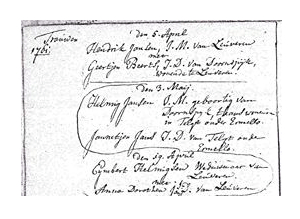 Trouwden
1761.
den 5. April
Hendrik Jansen, J.M. van Leuveren
met
Geertjen Beerts, J.D. van Doornspijk,
woonende te Leuveren.
den 3. Maij.
Helmig Jansen J.M. geboortig van
Doornspijk, thans wonen
in Telgt onder Ermello.
Jannetjen Jans J.D. van Telgt onder
Ermello.
den 19. April
Eymbert Helmigsen Weduwenaer van
Leuveren.
met
Anna Dorothea J.D. van Leuveren